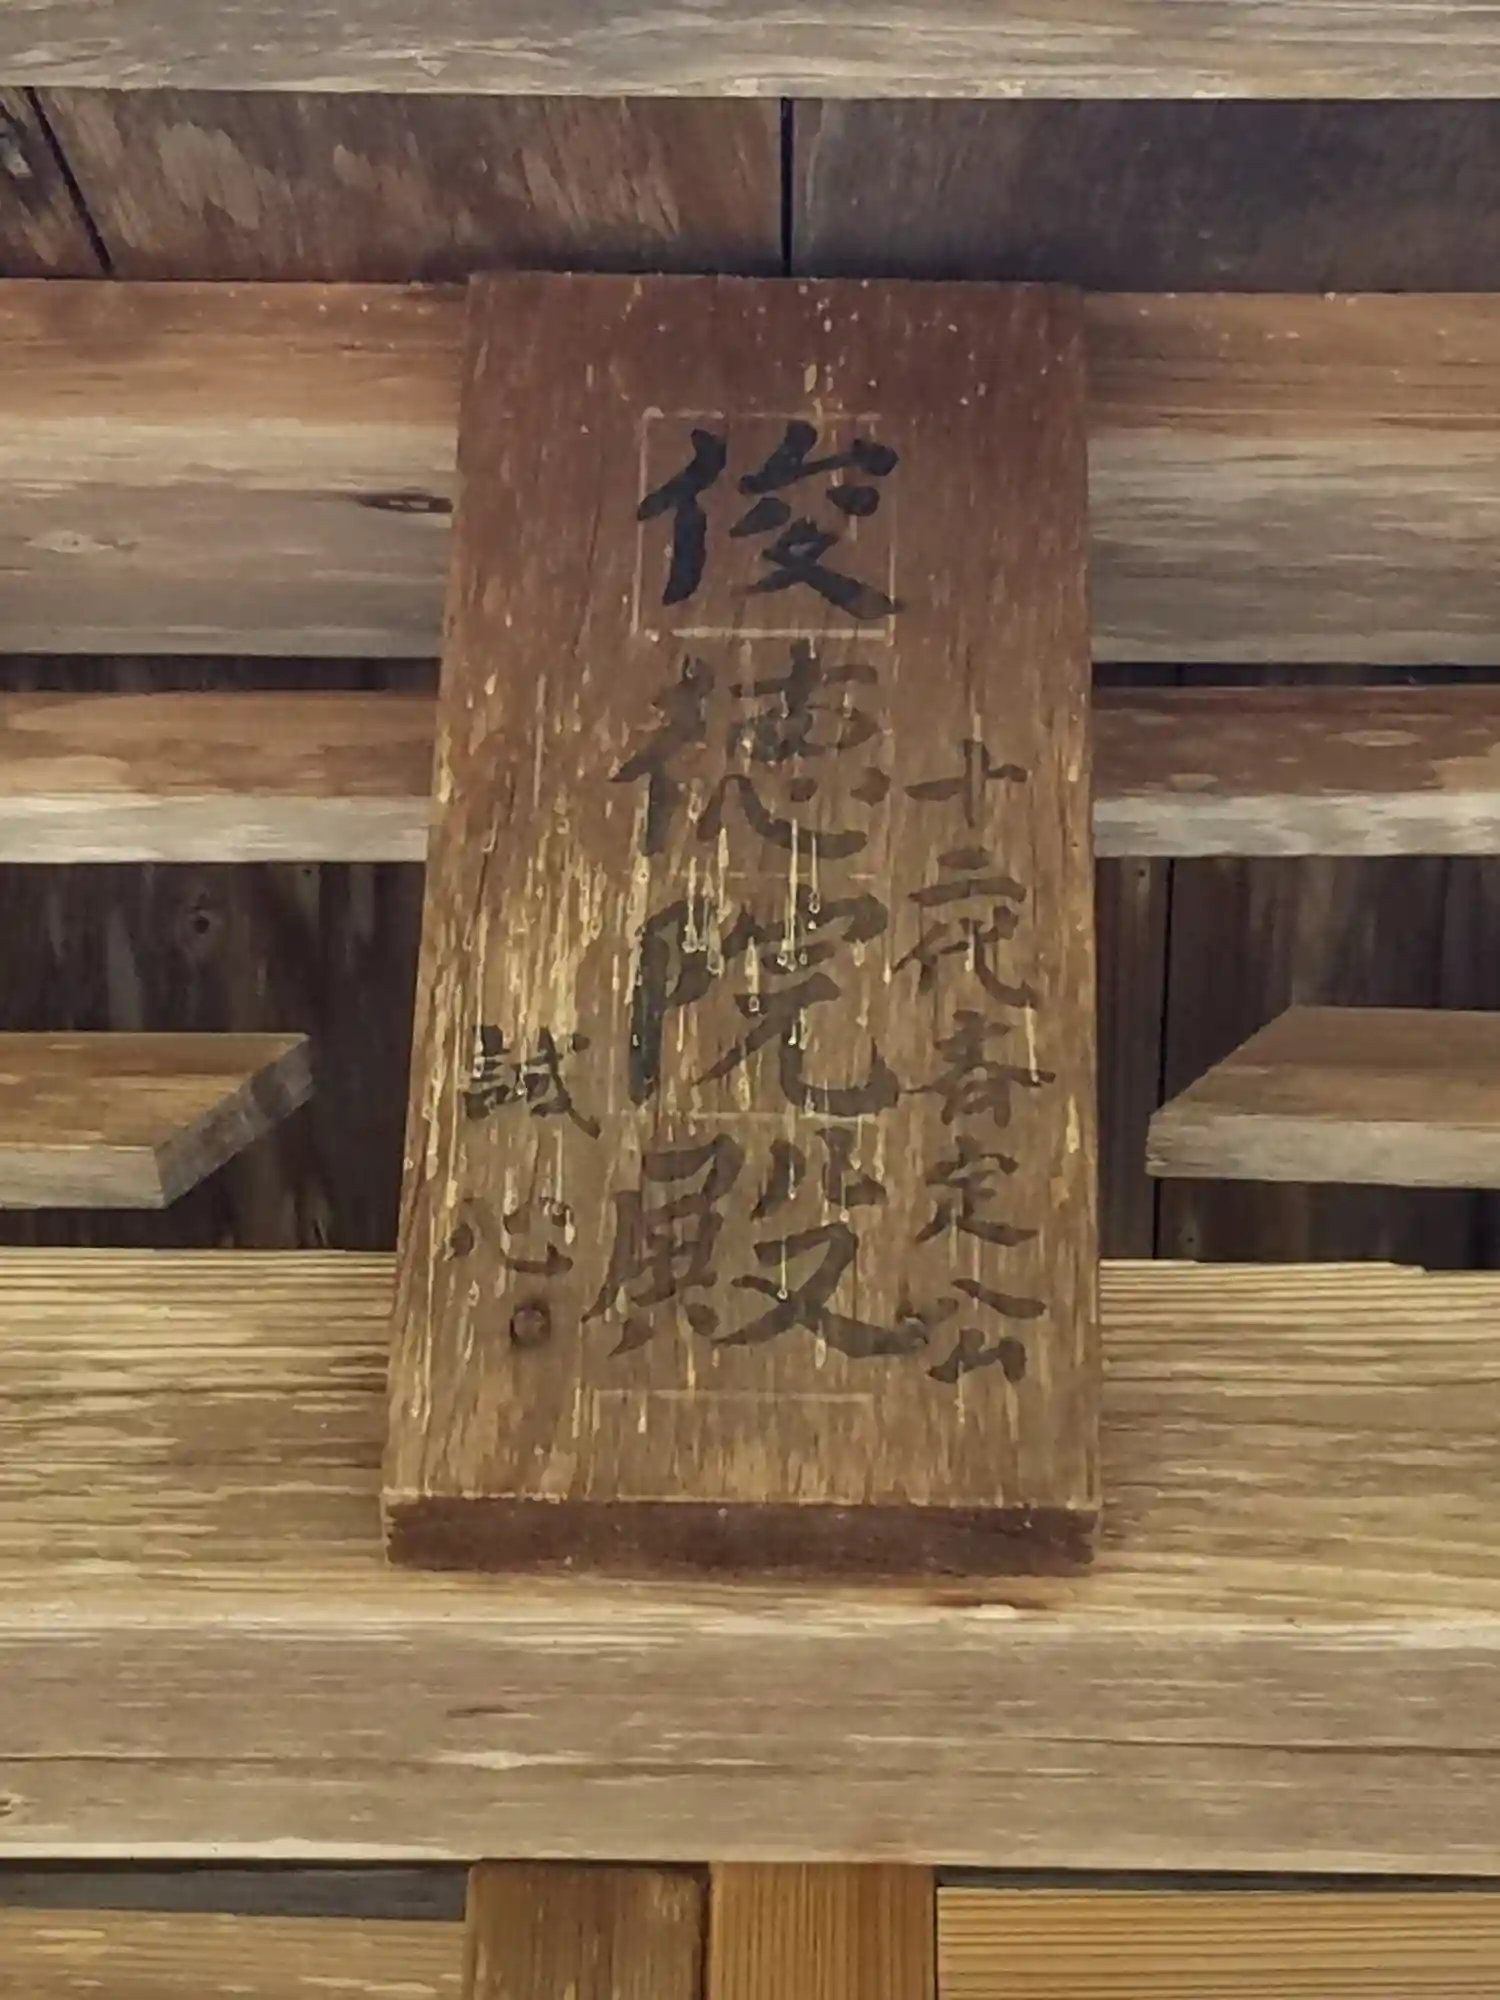 十二代斉定公
俊徳院殿
誠心